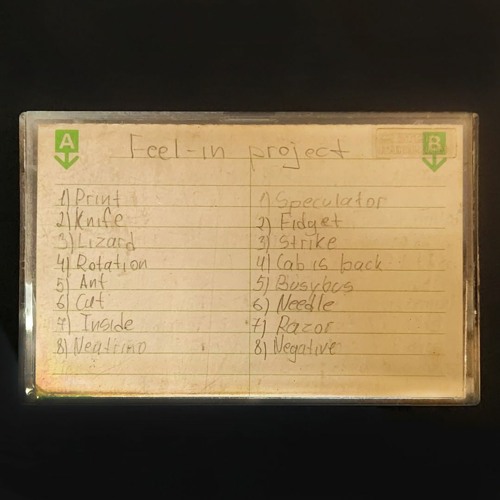 A
B
Feel-in project
1) Print
2) Knife
3) Lizard
4) Rotation
5) Ant
6) Cut
7) Inside
8) Neatrino
1) Speculator
2) Fidget
3) Strike
4) Cab is back
5) Busybus
6) Needle
7) Razor
8) Negative